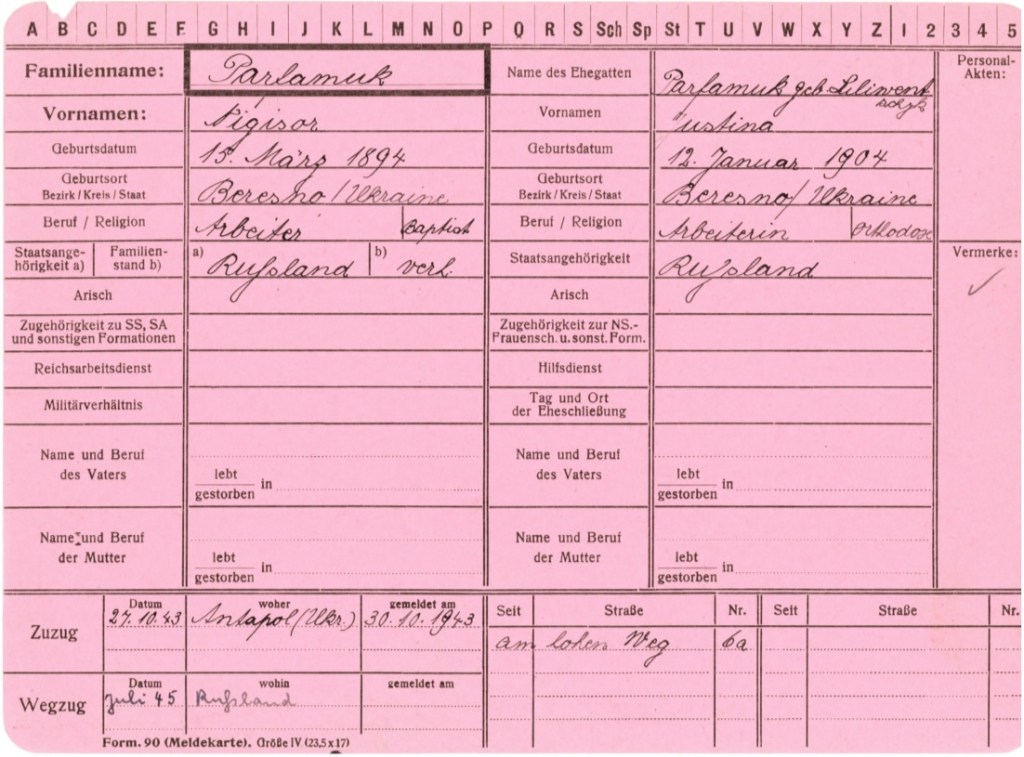 A B C D E F G H I J K L M N O P Q R S Sch Sp St T U V W X Y Z 1 2 3 4 5
Familienname: Parfamuk
Name des Ehegatten Parfamuk geb.
Personal-
Akten:
Vornamen: Nigisor
Vornamen Justina
Geburtsdatum 15. März 1894
Geburtsdatum 12. Januar 1904
Geburtsort
Bezirk / Kreis / Staat Beresno / Ukraine
Geburtsort
Bezirk / Kreis / Staat Beresno / Ukraine
Beruf / Religion Arbeiter Baptist
Beruf / Religion Arbeiterin orthodox
Staatsange-
hörigkeit a) Familien-
stand b) a) Rußland b) verh.
Staatsangehörigkeit Rußland
Vermerke:
Arisch
Arisch
Zugehörigkeit zu SS, SA
und sonstigen Formationen
Zugehörigkeit zur NS.-
Frauensch. u. sonst. Form.
Reichsarbeitsdienst
Hilfsdienst
Militärverhältnis
Tag und Ort
der Eheschließung
Name und Beruf
des Vaters
lebt
gestorben in
Name und Beruf
des Vaters
lebt
gestorben in
Name und Beruf
der Mutter
lebt
gestorben in
Name und Beruf
der Mutter
lebt
gestorben in
Zuzug
Datum woher gemeldet am
27.10.43 Antapol (Ukr.) 30.10.1943
Seit Straße Nr. Seit Straße Nr.
am lohen Weg 6a
Wegzug
Datum wohin gemeldet am
Juli 45 Rußland
Form. 90 (Meldekarte). Größe IV (23,5 x 17)